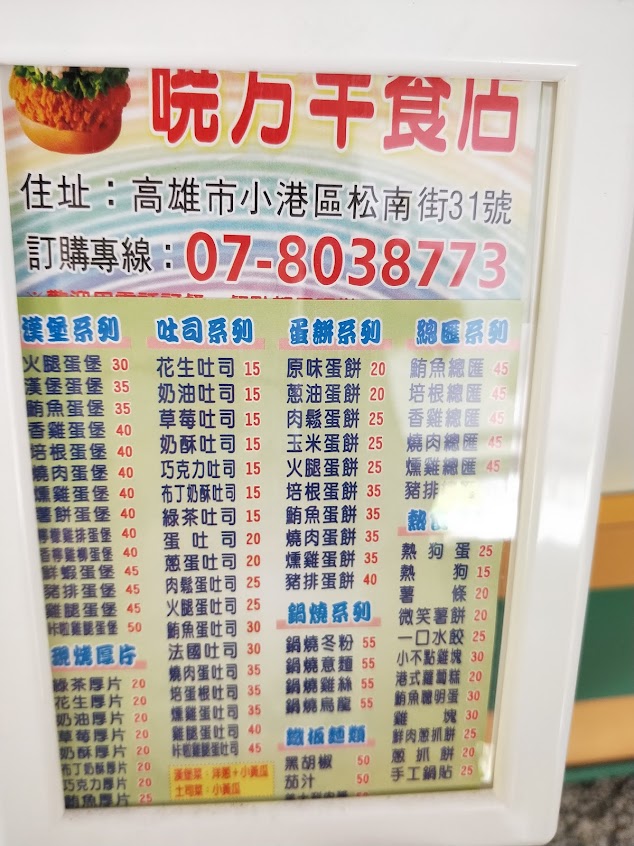 住址：高雄市小港區松南街31號
訂購專線：07-8038773
漢堡系列
火腿蛋堡 30
漢堡蛋堡 35
鮪魚蛋堡 35
香雞蛋堡 40
培根蛋堡 40
燒肉蛋堡 40
燻雞蛋堡 40
薯餅蛋堡 40
檸檬雞排蛋堡 40
香檸雞柳蛋堡 40
鮮蝦蛋堡 45
豬排蛋堡 45
雞腿蛋堡 45
咔啦雞腿蛋堡 50
現烤厚片
綠茶厚片 20
花生厚片 20
奶油厚片 20
草莓厚片 20
奶酥厚片 20
布丁奶酥厚片 20
巧克力厚片 20
鮪魚厚片 25
吐司系列
花生吐司 15
奶油吐司 15
草莓吐司 15
奶酥吐司 15
巧克力吐司 15
布丁奶酥吐司 15
綠茶吐司 15
蛋吐司 20
蔥蛋吐司 20
肉鬆蛋吐司 25
火腿蛋吐司 25
鮪魚蛋吐司 30
法國吐司 30
燒肉蛋吐司 35
培蛋根吐司 35
燻雞蛋吐司 35
雞腿蛋吐司 40
咔啦雞腿蛋吐司 45
漢堡菜：洋蔥＋小黃瓜
土司菜：小黃瓜
蛋餅系列
原味蛋餅 20
蔥油蛋餅 20
肉鬆蛋餅 25
玉米蛋餅 25
火腿蛋餅 25
培根蛋餅 35
鮪魚蛋餅 35
燒肉蛋餅 35
燻雞蛋餅 35
豬排蛋餅 40
鍋燒系列
鍋燒冬粉 55
鍋燒意麵 55
鍋燒雞絲 55
鍋燒烏龍 55
鐵板麵類
黑胡椒 50
茄汁 50
總匯系列
鮪魚總匯 45
培根總匯 45
香雞總匯 45
燒肉總匯 45
燻雞總匯 45
豬排
熱
熱狗蛋 25
熱狗 15
薯條 20
微笑薯餅 20
一口水餃 25
小不點雞塊 30
港式蘿蔔糕 20
鮪魚聰明蛋 30
雞塊 30
鮮肉蔥抓餅 25
蔥抓餅 20
手工鍋貼 25